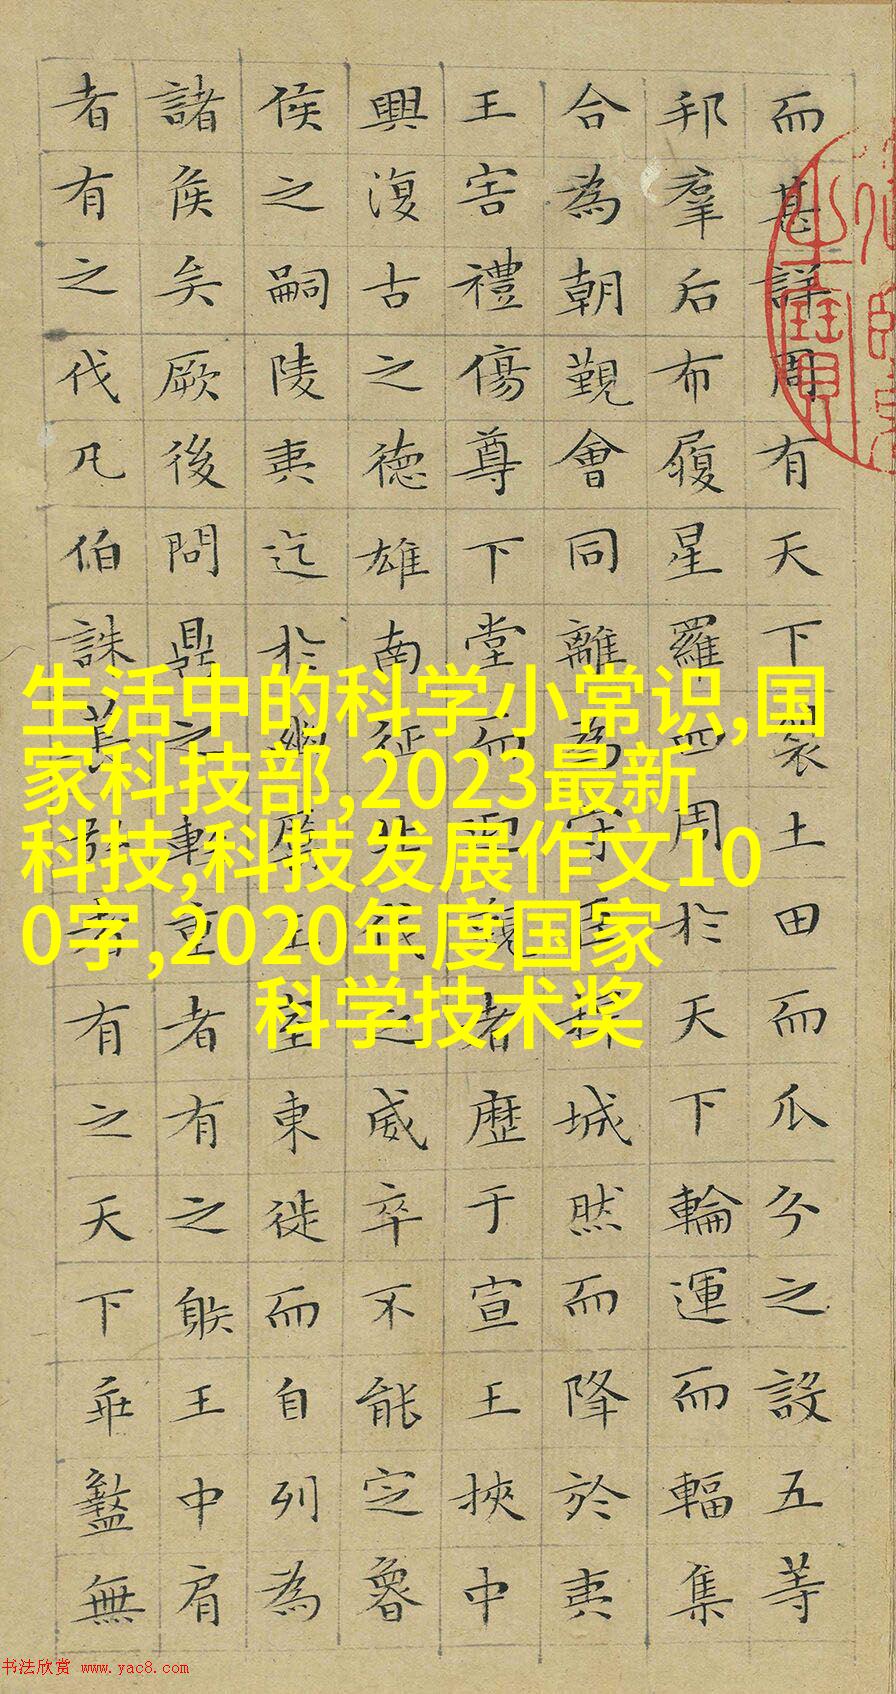 而甚詳周有天下裂土田而瓜分之設五等
邦羣后布履星羅四周於天下輪運而輻集
合為朝覲會同離為守臣扞城然而降於夷
王害禮傷尊下堂而迎覲者歷于宣王挾中
興復古之德雄南征北伐之威卒不能定魯
侯之嗣陵夷迄於幽厲王室東徙而自列為
諸侯矣厥後問鼎之輕重者有之射王中肩
者有之伐凡伯誅萇弘者有之天下乖盭無
生活中的科学小常识,国
家科技部,2023最新
科技,科技发展作文10
0字,2020年度国家
科学技术奖
书法欣赏 www.yac8.com